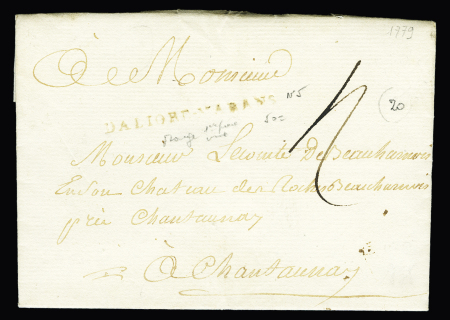 1779
à Monsieur
DALIGRE-MARANS
N5
20
Monsieur Lecomte De Beauharnois
En Son Chateau des Roches Beauharnois
près Chantaunay
à Chantaunay